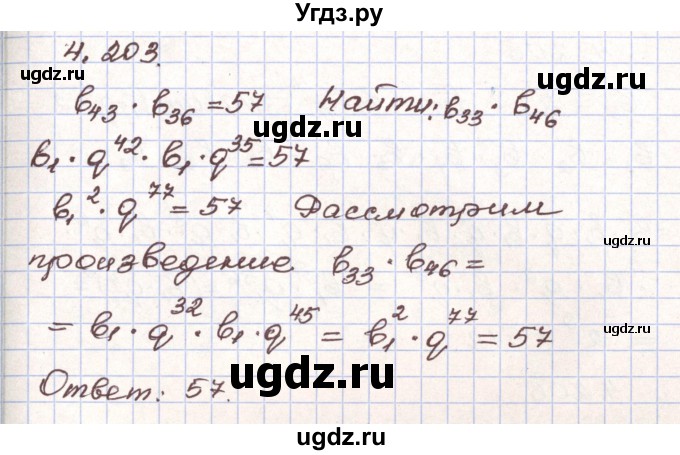 Угдз.ру
4.203.
ugdz.ru ugdz.ru
b₄₃ · b₃₆ = 57 Найти: b₃₃ · b₄₆
ugdz.ru
b₁ · q⁴² · b₁ · q³⁵ = 57
b₁² · q⁷⁷ = 57 Рассмотрим
ugdz.ru
произведение b₃₃ · b₄₆ =
ugdz.ru
= b₁ · q³² · b₁ · q⁴⁵ = b₁² · q⁷⁷ = 57
ugdz.ru
Ответ: 57.
ugdz.ru
ugdz.ru
ugdz.ru